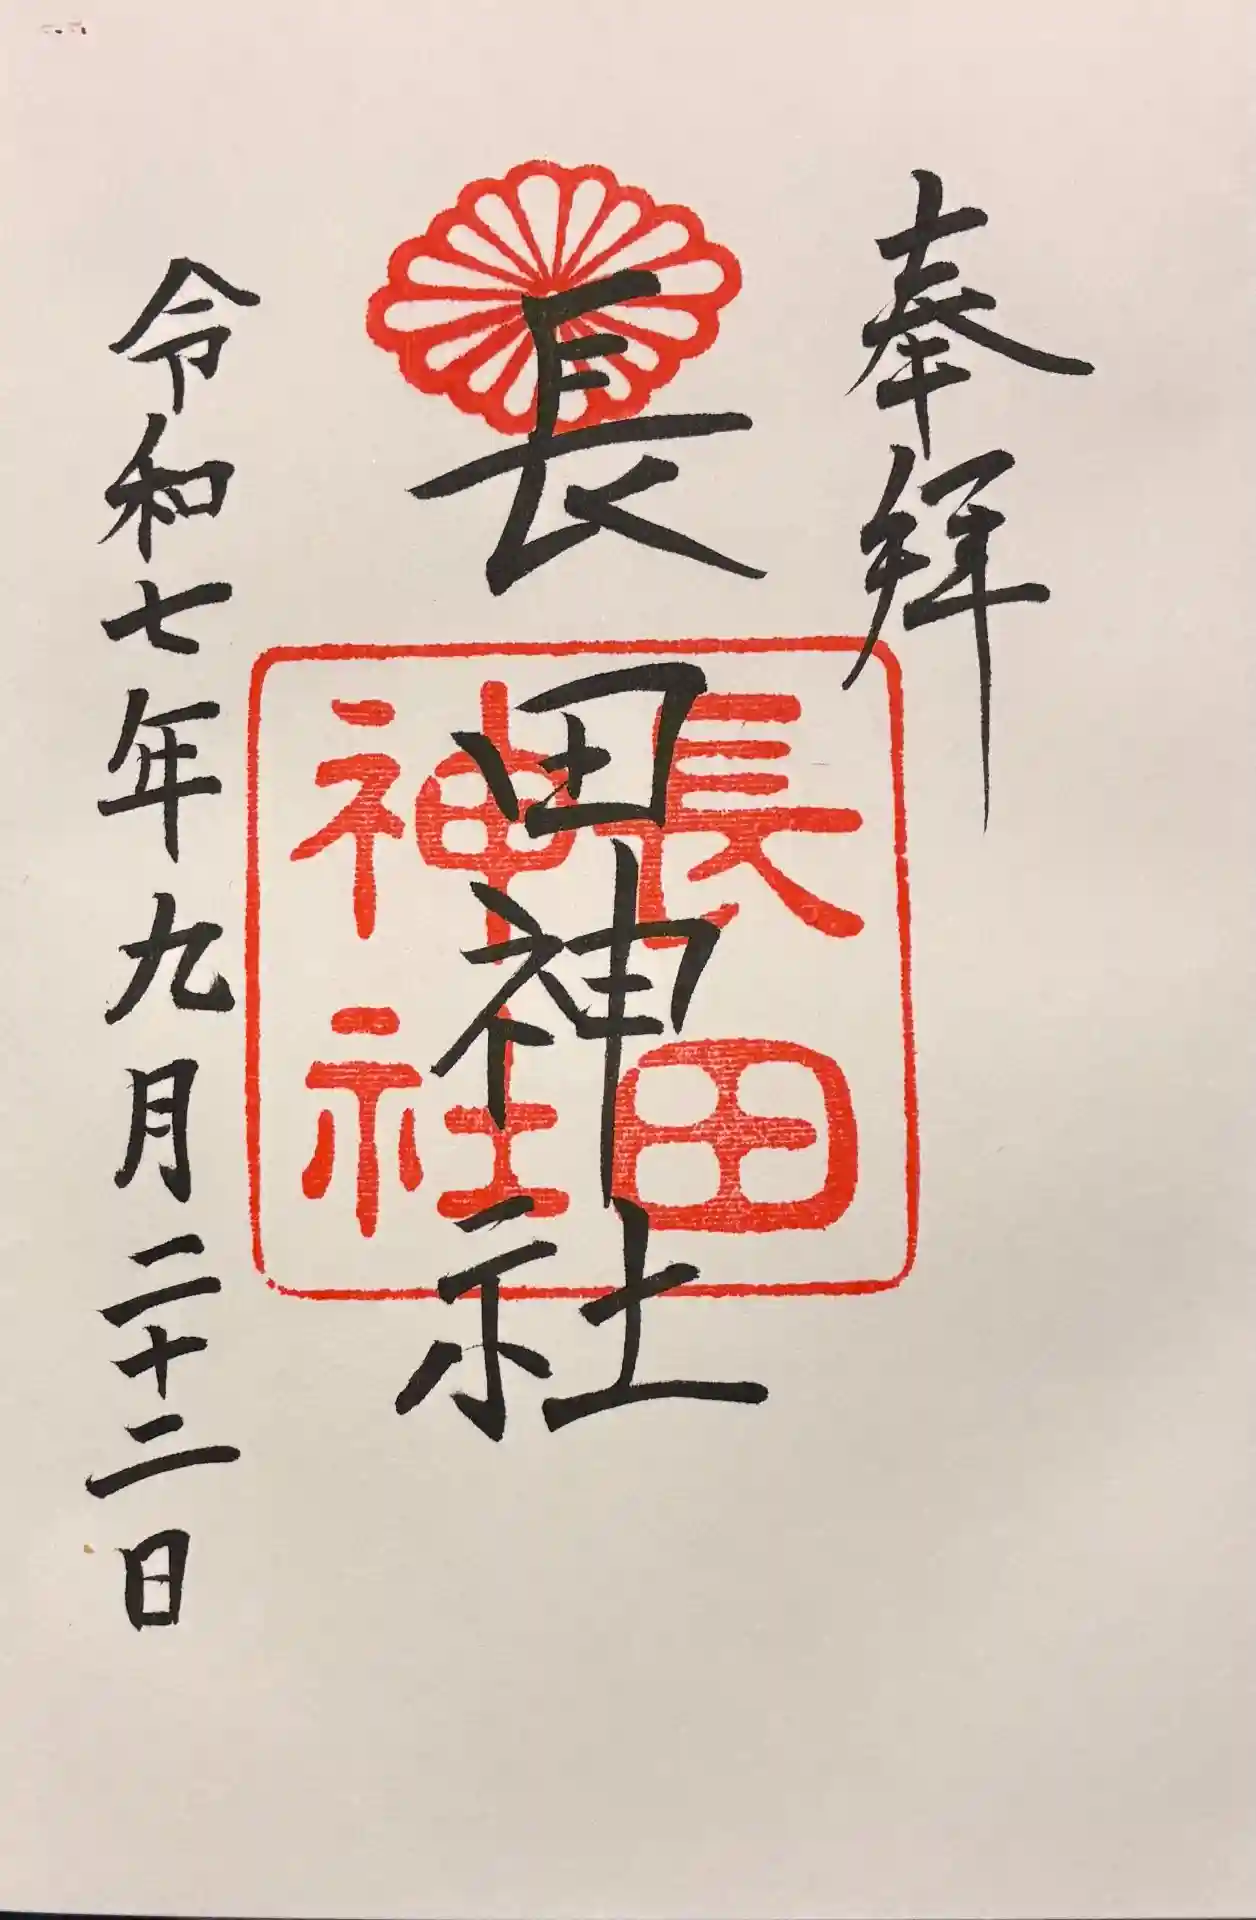 奉拜
長田神社
長田神社
令和七年九月二十二日